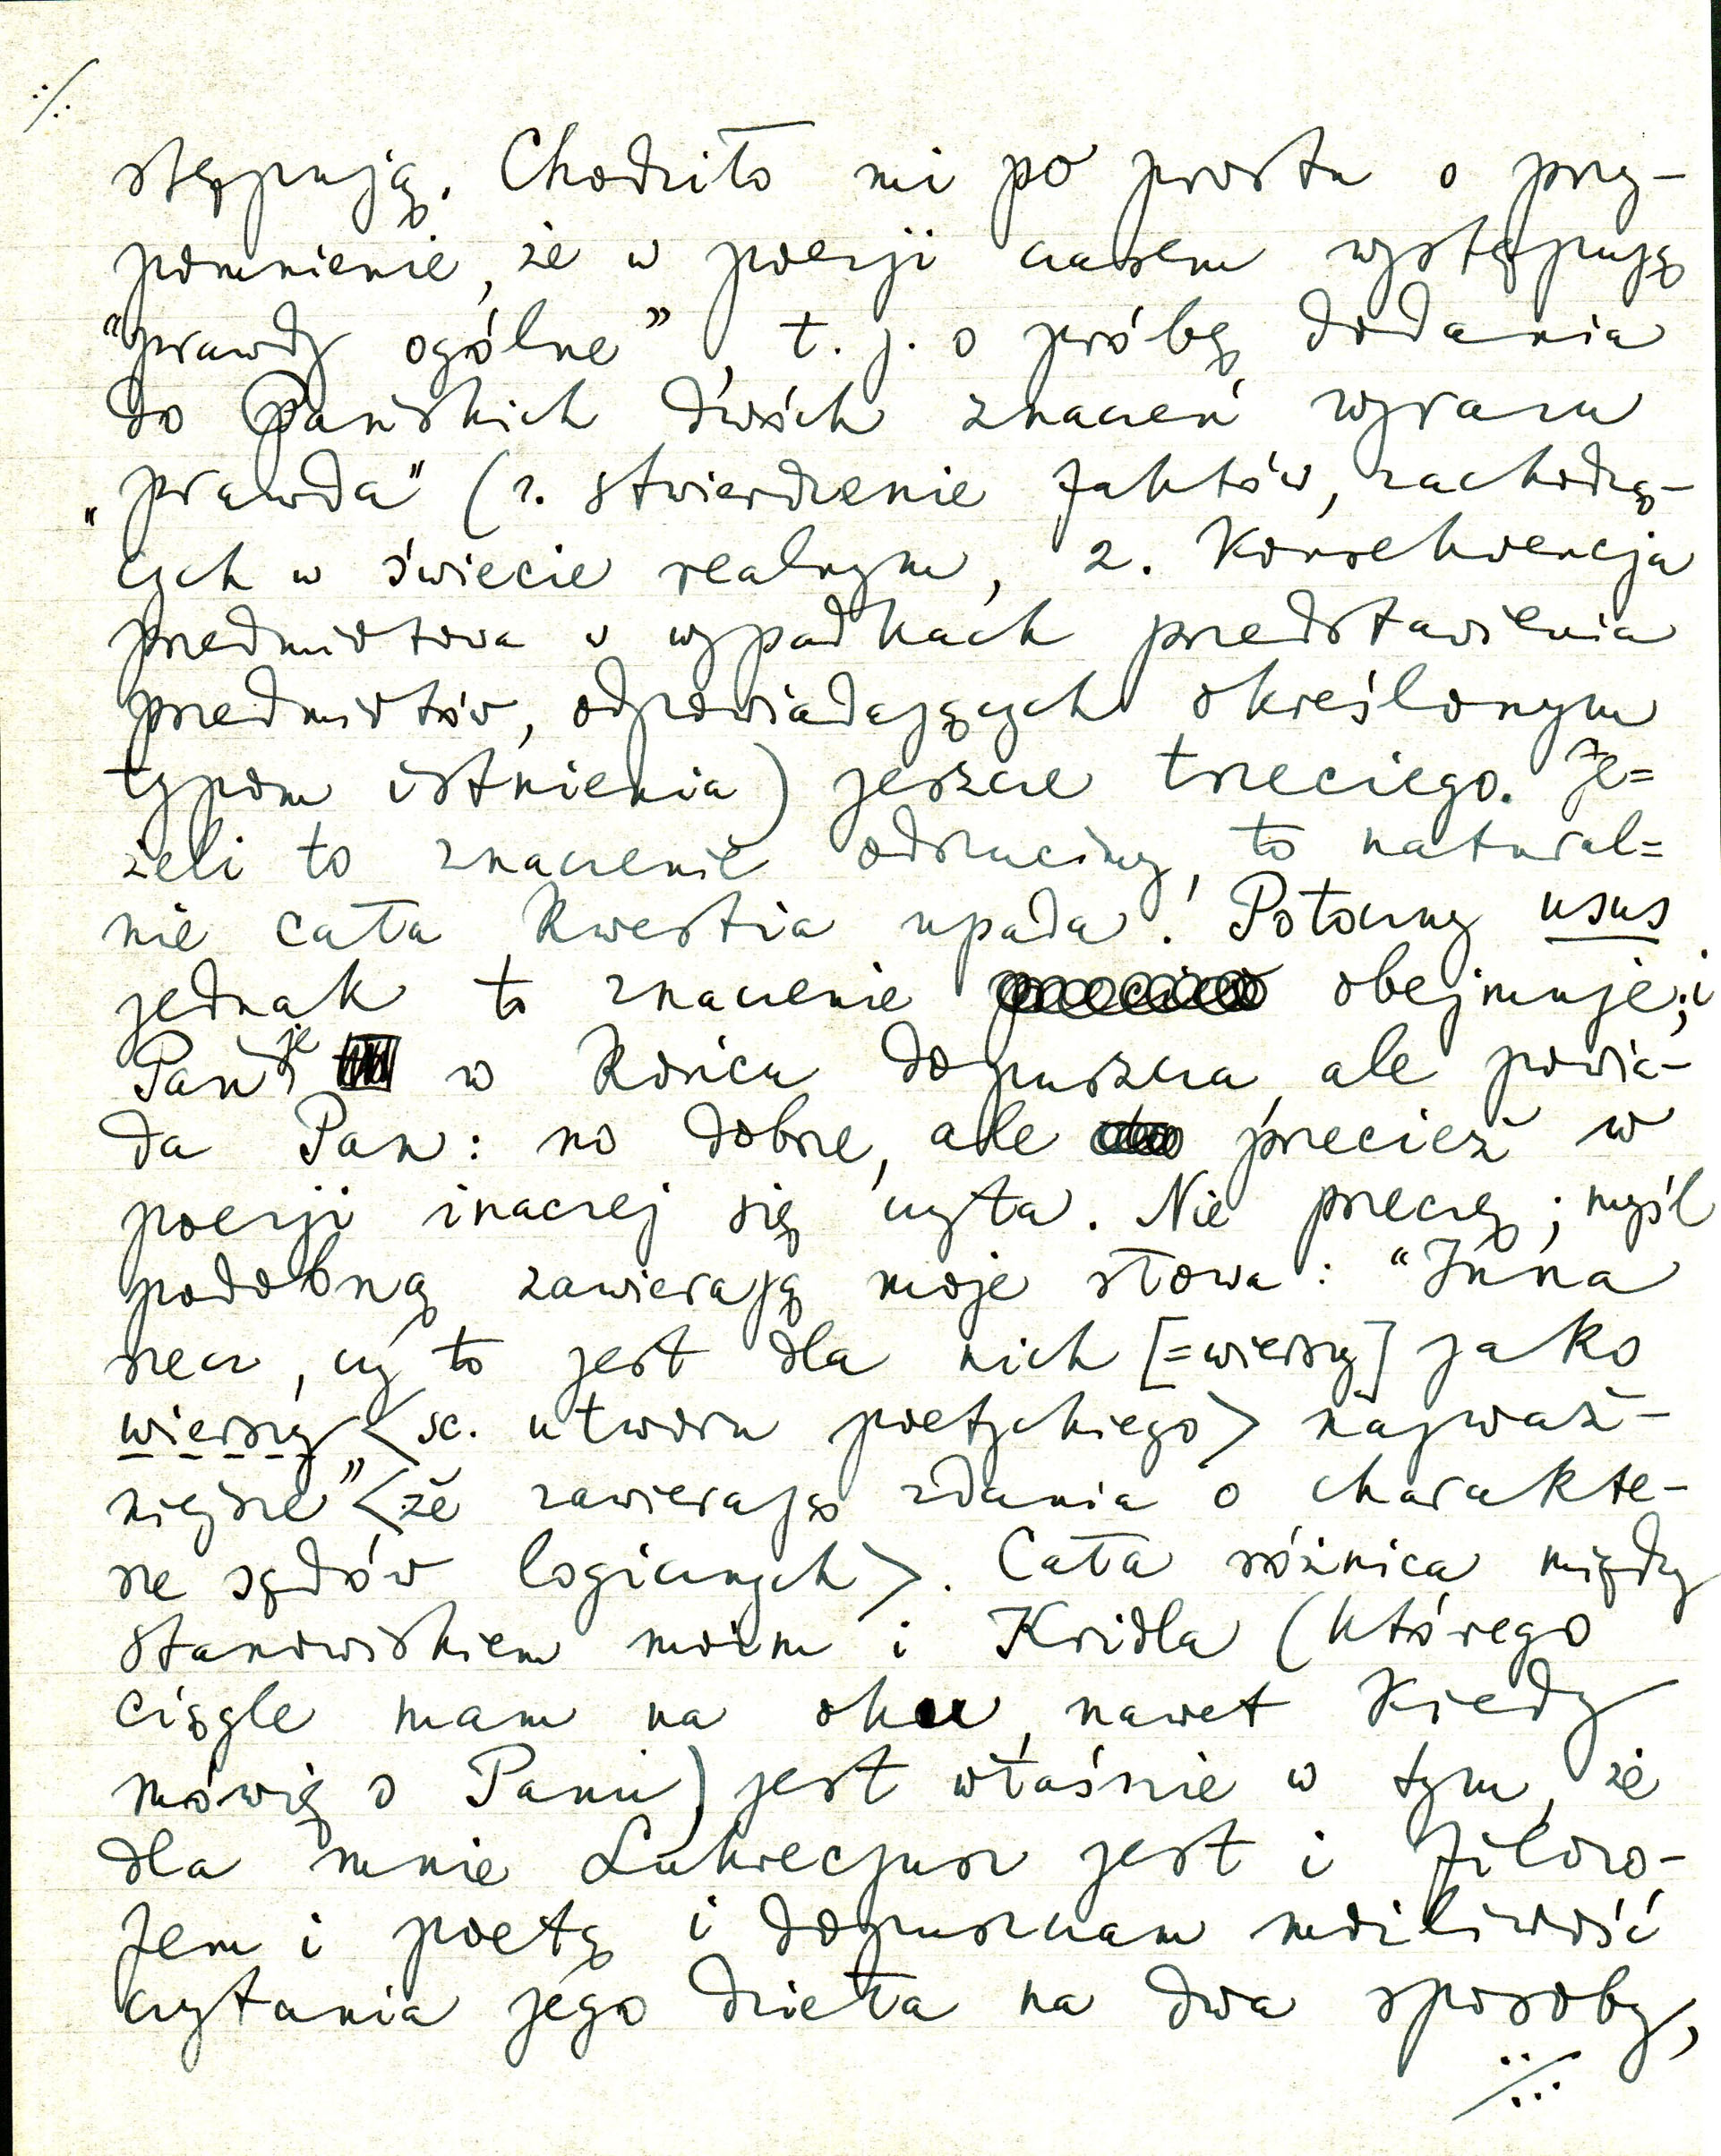 ·/.
stępują. Chodziło mi po prostu o przy-
pomnienie, że w poezji czasem występują
"prawdy ogólne", t. j. o próbę dodania
do Pańskich dwóch znaczeń wyrazu
„prawda" (1. stwierdzenie faktów, zachodzą-
cych w świecie realnym, 2. Konsekwencja
przedmiotowa w wypadkach przedstawienia
przedmiotów, odpowiadających określonym
typom istnienia) jeszcze trzeciego. Je=
żeli to znaczenie odrzucimy, to natural=
nie cała kwestia upada! Potoczny usus
jednak to znaczenie obejmuje; i
Pan je w końcu dopuszcza, ale powia-
da Pan: no dobrze, ale przecież w
poezji inaczej się czyta. Nie przeczę; myśl
podobną zawierają moje słowa: "Inna
rzecz, czy to jest dla nich [=wierszy] jako
wierszy <sc. utworu poetyckiego> najważ-
niejsze" <że zawierają zdania o charakte-
rze sądów logicznych>. Cała różnica między
stanowiskiem moim i Kridla (którego
ciągle mam na oku, nawet kiedy
mówię o Panu) jest właśnie w tym, że
dla mnie Lukrecjusz jest i filozo-
fem i poetą i dopuszczam możliwość
czytania jego dzieła na dwa sposoby,
·/.